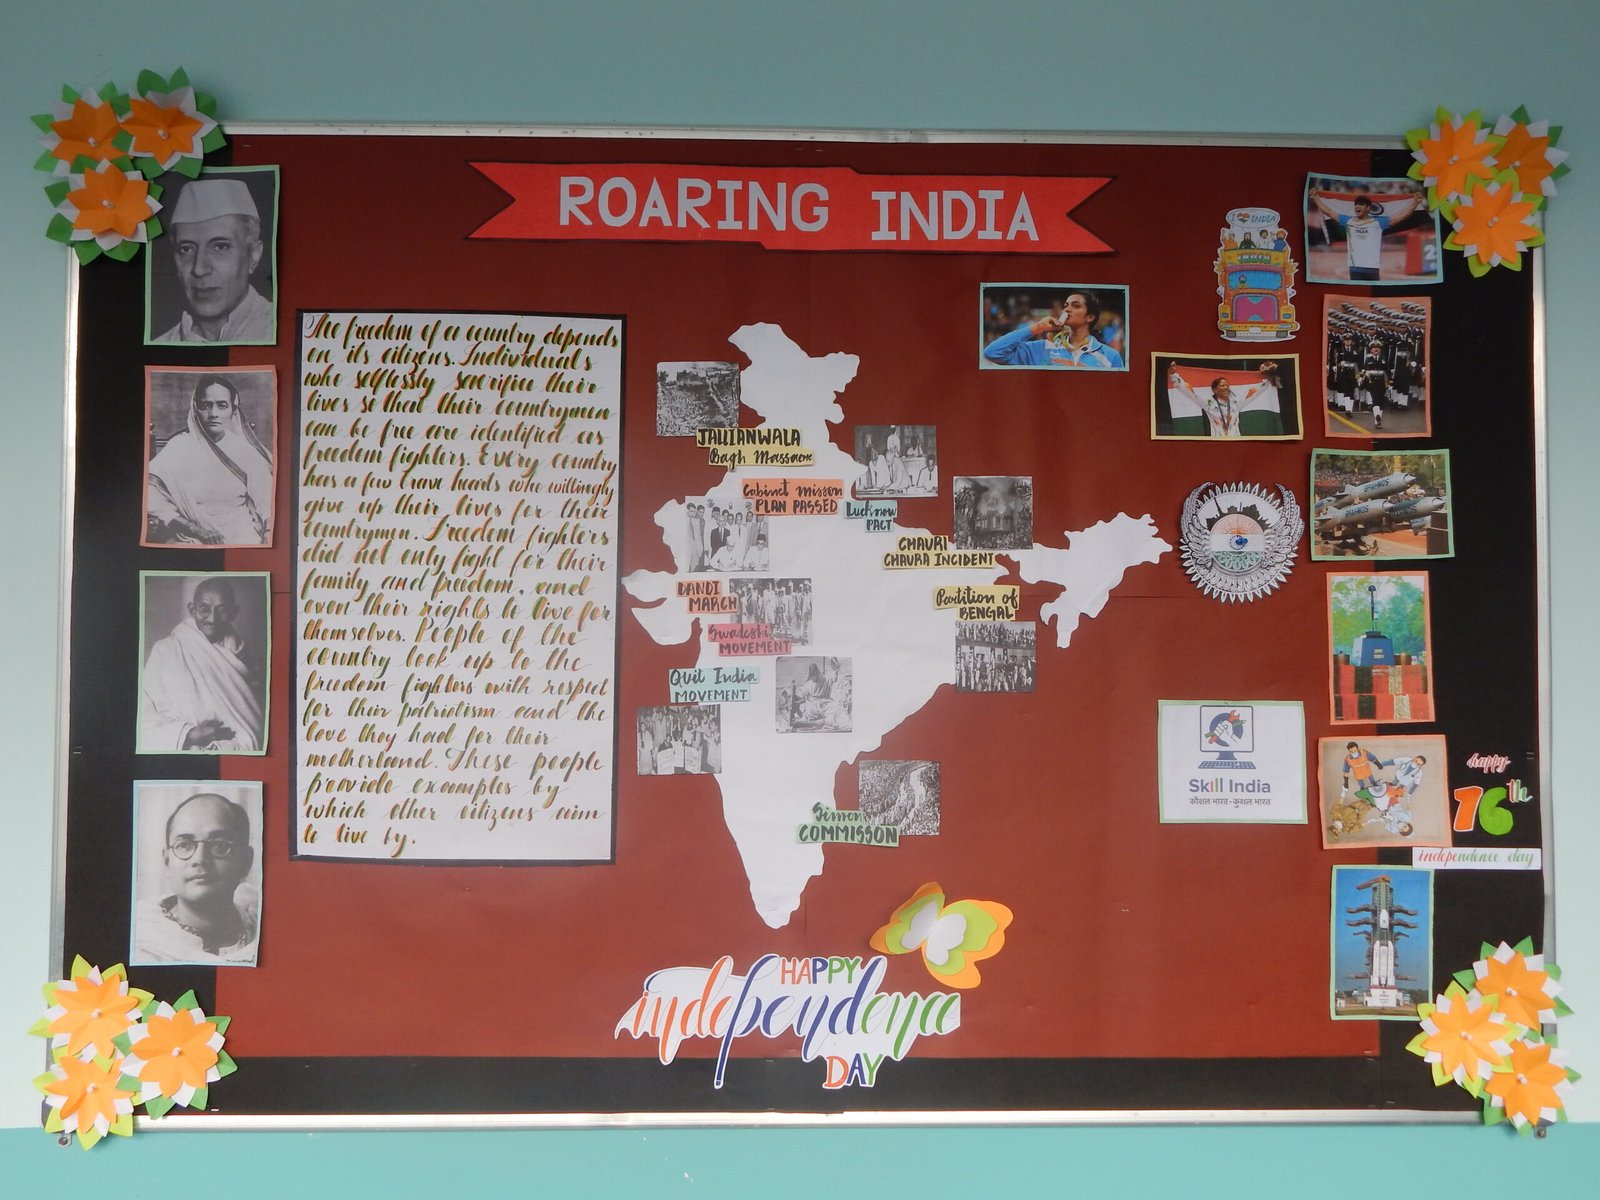 ROARING INDIA
The freedom of a country depends
on its citizens. Individuals
who selflessly sacrifice their
lives so that their countrymen
can be free are identified as
freedom fighters. Every country
has a few brave hearts who willingly
give up their lives for their
countrymen. Freedom fighters
did not only fight for their
family and freedom, and
even their rights to live for
themselves. People of the
country look up to the
freedom fighters with respect
for their patriotism and the
love they had for their
motherland. These people
provide examples by
which other citizens aim
to live by.
JALLIANWALA
Bagh Massacre
Cabinet misson
PLAN PASSED
Lucknow
PACT
CHAURI
CHAURA INCIDENT
DANDI
MARCH
Partition of
BENGAL
Swadeshi
MOVEMENT
Quit India
MOVEMENT
Simon
COMMISSON
HAPPY
independence
DAY
I INDIA
INDIA
BRAHMOS
BRAHMOS
Skill India
कौशल भारत - कुशल भारत
happy
76th
independence day